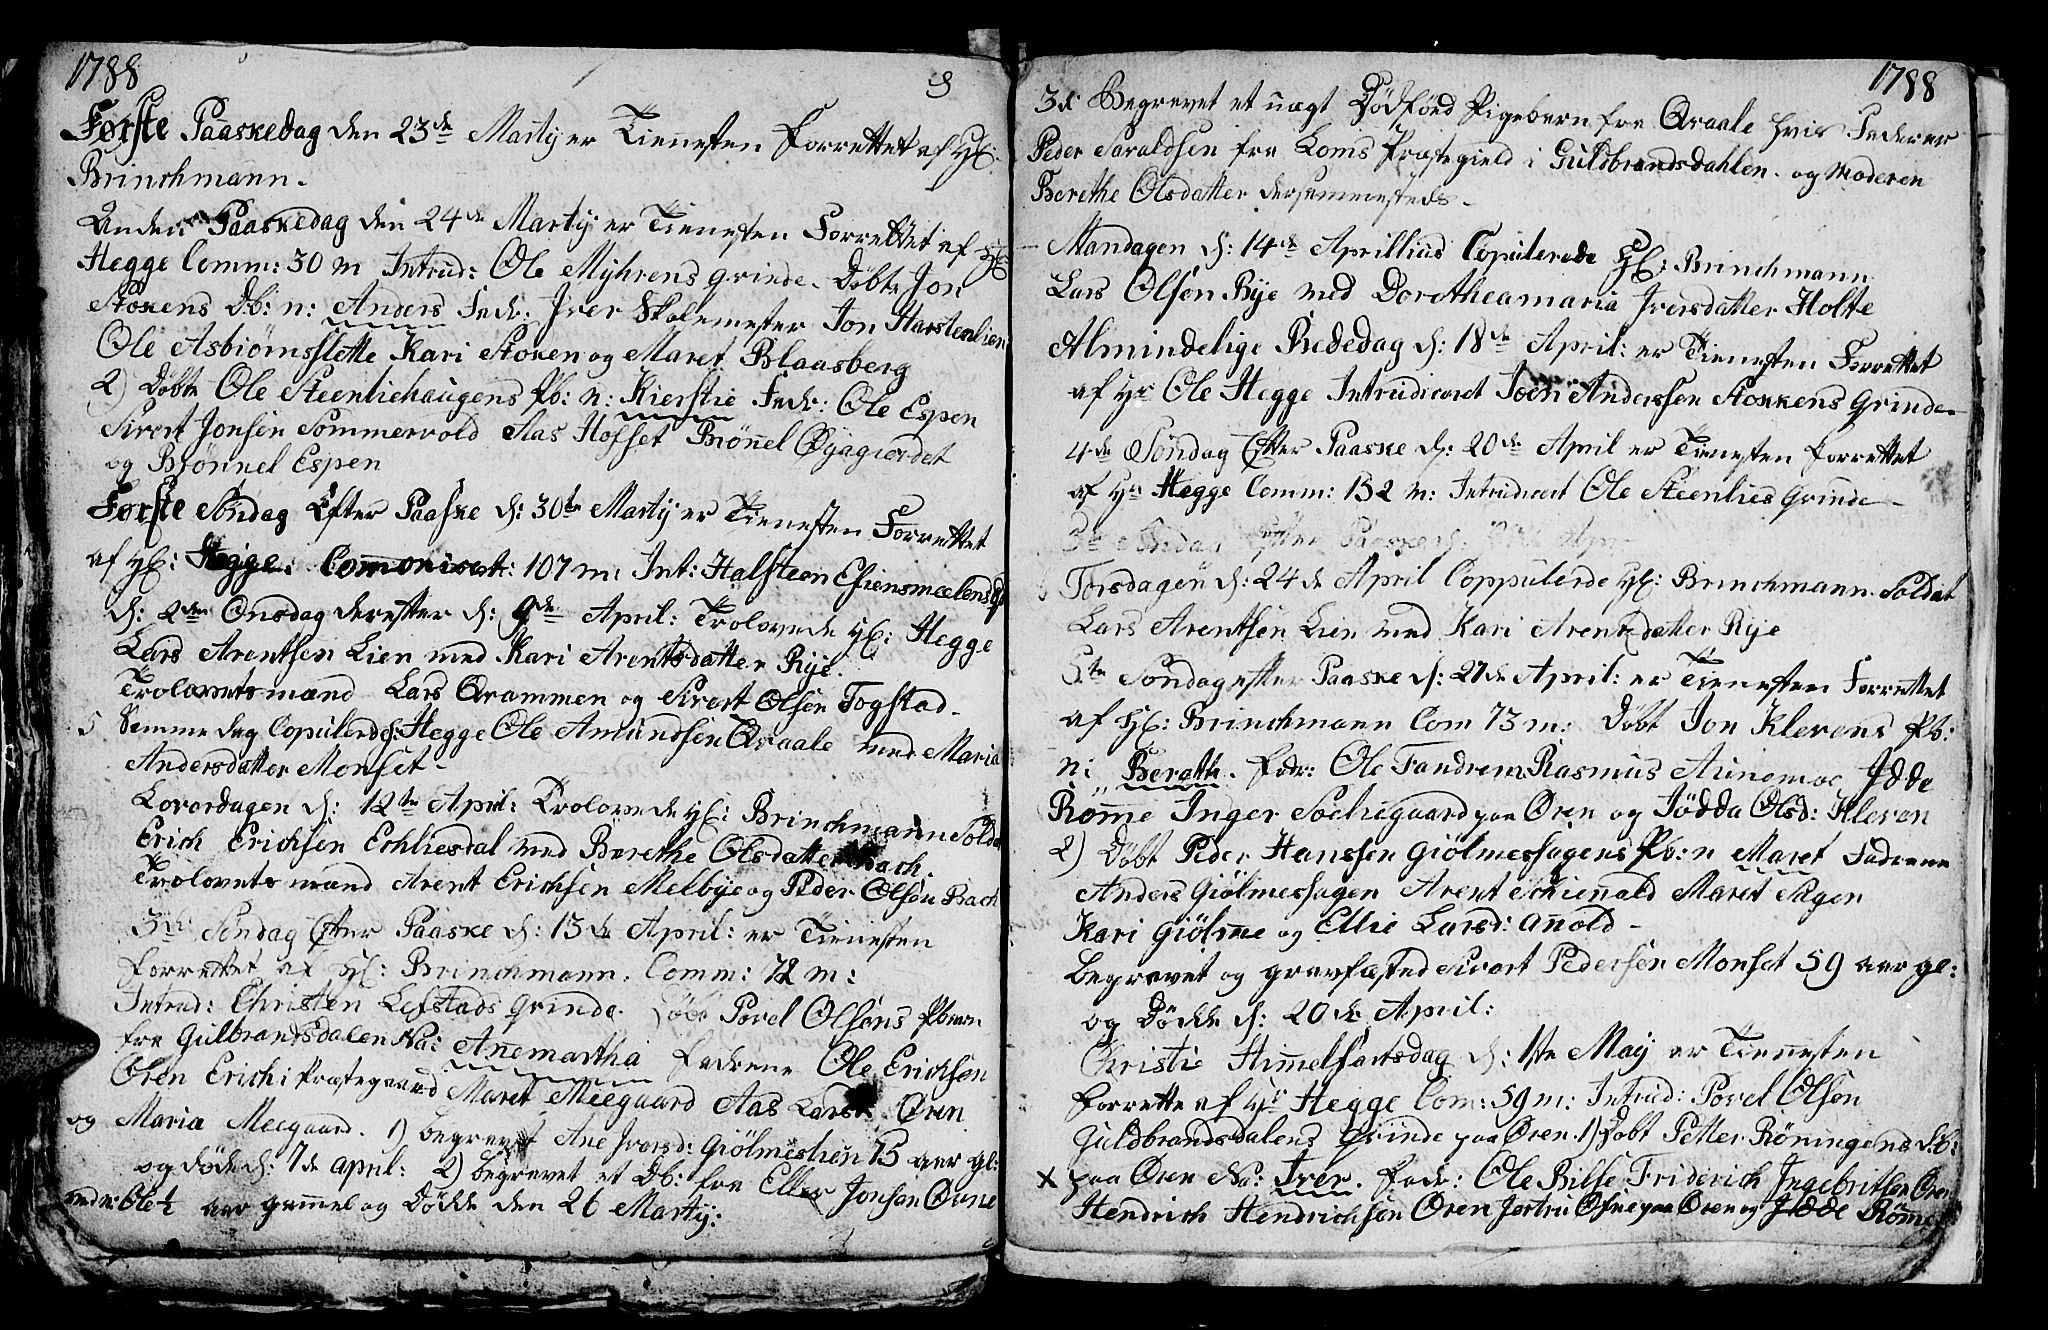 1788
8
Første Paaskedag den 23de Martij er Tienesten Forrettet af Hr:
Brinchmann.
Anden Paaskedag den 24de Martij er Tienesten Forrettet af Hr
Hegge Comm: 30 m Introd: Ole Myhrens grinde. Døbt Jon
Stokens Db: n: Anders Fadr: Iver Skolemester Jon Harstenlien
Ole Asbiørnslette Kari Stoken og Maret Blaasberg
2) Døbt Ole Steenliehaugens Pb: n: Kierstie Fadr: Ole Espen
Sivert Jonsen Sommervold Aas Hofset Brønel Øyagiordet
og Brønnel Espen
Første Søndag Efter Paaske d: 30te Martij er Tienesten Forrettet
af Hr: Hegge. Comonicat: 107 m: Int: Halsteen
d: 2den Onsdag derefter d: 9de April: Trolovede Hr: Hegge
Lars Arentsen Lien med Kari Arentsdatter Rye.
Trolovetsmænd Lars Drammen og Sivert Olsen Fogstad
5 Samme dag Copulerede Hr: Hegge Ole Amundsen Qvaale med Maria
Andersdatter Monset
Løverdagen d: 12te April: Trolovede Hr: Brinchmann Solda
Erich Erichsen Echliesdal med Berethe Olsdatter Bach.
Trolovetsmænd Arent Erichsen Melbye og Peder Olsen Bach
3de Søndag Efter Paaske d: 13de April: er Tienesten
forrettet af Hr: Brinchmann. Comm: 72 m:
Introd: Christen Lefstads grinde. Døbt Povel Olsøns Pbarn
fra Gulbrandsdalen Na: Annemartha Fadrene Ole Erichsen
Ören Erich i Præstegaard Maret Meegaard Aas Larsd: Ören
og Maria Meegaard. 1) begravet Ane Iversd: Giølmeslien 75 aar gl:
og døde d: 7de april: 2) begravet et Db: fra Elling Jonsen Øvne
ved n: Ole ½ aar gamel og Dødde den 26 Martij:
1788
3de Begravet et uægt Dødföd Pigebarn fra Qvaale hvis Fader er
Peder Taraldsen fra Loms Præstegield i Guldbrandsdahlen. og Moderen
Berethe Olsdatter dersammesteds
Mandagen d: 14de Aprillius Copulerede Hr: Brinchmann
Lars Olsen Rye med Dorotheamaria Iversdatter Holte
Almindelige Bededag d: 18de April: er Tienesten Forrettet
af Hr Ole Hegge Introdiceret Joen Anderssen Stokkens Grinde
4de Søndag Efter Paaske d: 20de April er Tienesten Forrettet
af Hr Hegge Comm: 152 m: Introdicert Ole Steenlies grinde
3de Søndag Efter Paaske d:
Torsdagen d: 24de April Coppulerde Hr: Brinchmann Soldat
Lars Arentsen Lien med Kari Arentzdatter Rye
5te Søndag efter Paaske d: 27de April: er Tienesten Forrettet
af Hr: Brinchmann Com 73 m: Døbt Jon Klevens Pb:
n: Berethe. fadr: Ole Tandrem Rasmus Aunemoe Idde
Römme Inger Sochegaard paa Ören og Jødda Olsd: Kleven
2) Døbt Peder Hanssen Giølmeshagens Pb: n Maret Fadrene
Anders Giølmeshagen Arent Schienald Maret Hagen
Kari Giølme og Ellie Larsd: Anold
Begravet og gravfæsted Sivert Pedersen Monset 59 aar gl:
og Dødde d: 20de April:
Christi Himelfartsdag d: 1ste Maij er Tienesten
forrette af Hr Hegge Com: 59 m: Introd: Povel Olsen
Guldbrandsdalens Grinde paa Øren. 1) Døbt Petter Röningens Db:
x paa Øren Na: Iver. Fadr: Ole Bilse Friderich Ingebritsen Øren
Hendrich Hendrichsen Ören Jertru Øfne paa Øren og Idde Röme